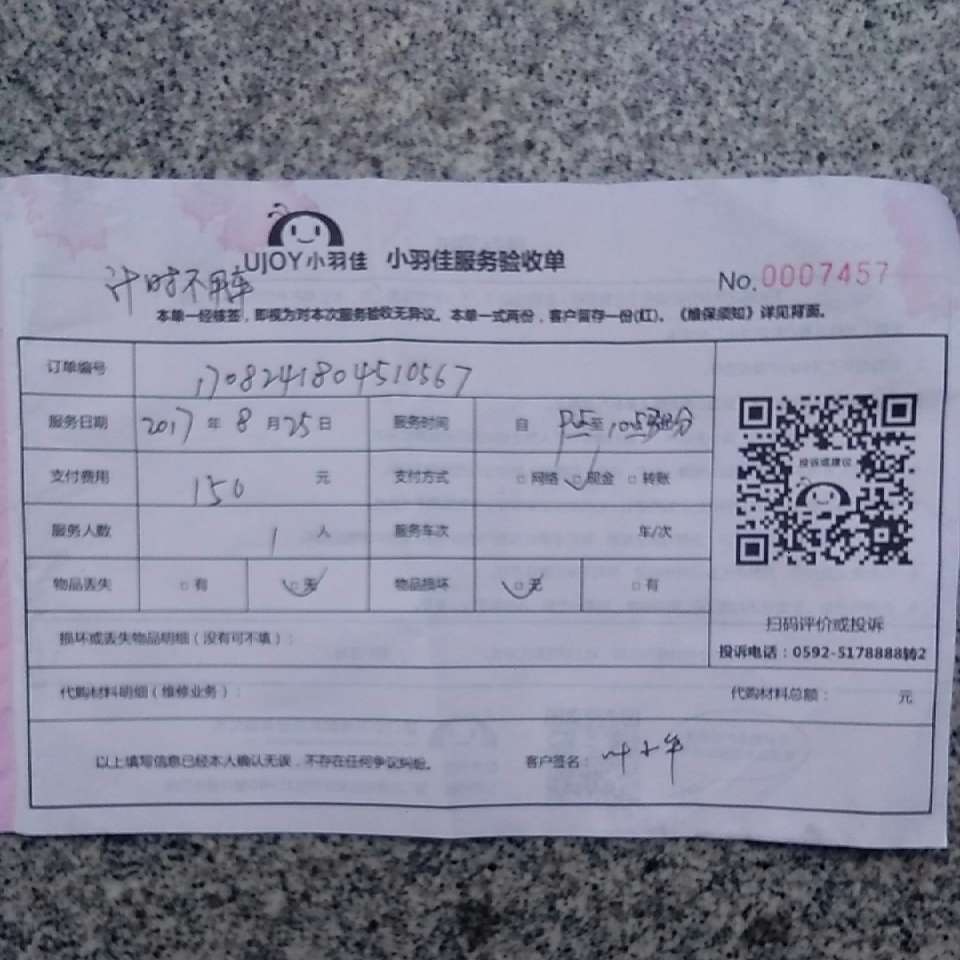 UJOY小羽佳 小羽佳服务验收单
计时不用车
No.0007457
本单一经核签，即视为对本次服务验收无异议。本单一式两份，客户留存一份(红)。《维保须知》详见背面。
订单编号 170824180451056​7
服务日期 2017年8月25日 服务时间 自 至 10点
支付费用 150 元 支付方式 □网络 □现金 □转账
服务人数 1 人 服务车次 车/次
物品丢失 □有 □无 物品损坏 □无 □有
投诉或建议
扫码评价或投诉
投诉电话：0592-5178888转2
损坏或丢失物品明细（没有可不填）：
代购材料明细（维修业务）： 代购材料总额： 元
以上填写信息已经本人确认无误，不存在任何争议纠纷。 客户签名：叶小华